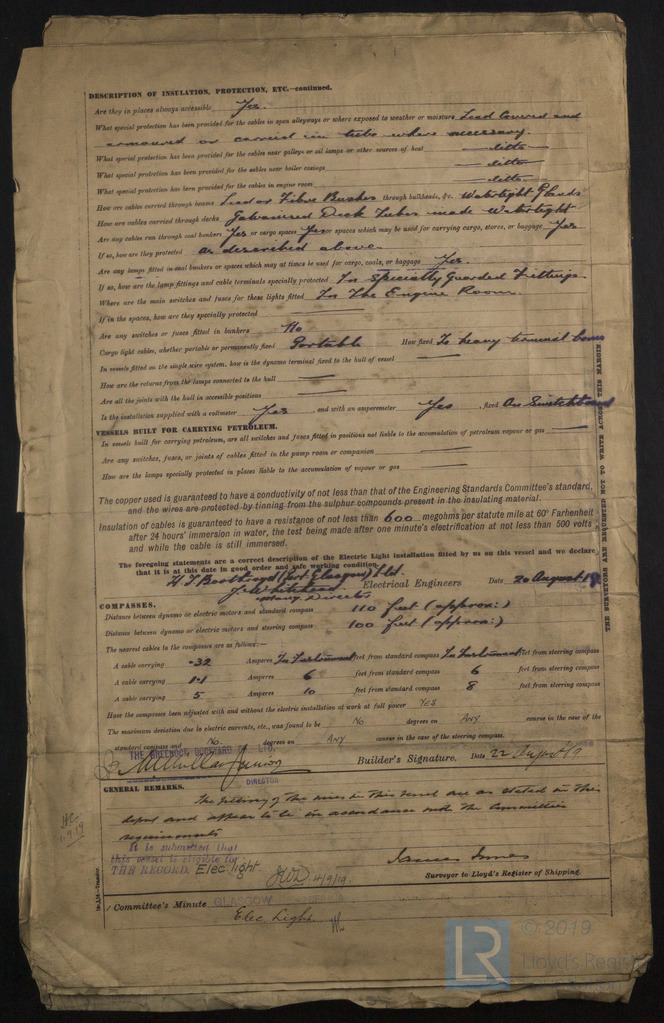 DESCRIPTION OF INSULATION, PROTECTION, ETC.—continued.
Are they in places always accessible Yes.
What special protection has been provided for the cables in open alleyways or where exposed to weather or moisture Lead Covered and
armoured or carried in tubes where necessary.
What special protection has been provided for the cables near galleys or oil lamps or other sources of heat — ditto —
What special protection has been provided for the cables near boiler casings — ditto —
What special protection has been provided for the cables in engine room — ditto —
How are cables carried through beams Lead or Fibre Bushes through bulkheads, &c. Watertight Glands
How are cables carried through decks Galvanised Deck Tubes made Watertight
Are any cables run through coal bunkers Yes or cargo spaces Yes or spaces which may be used for carrying cargo, stores, or baggage Yes
If so, how are they protected as described above
Are any lamps fitted in coal bunkers or spaces which may at times be used for cargo, coals, or baggage Yes.
If so, how are the lamp fittings and cable terminals specially protected In specially Guarded Fittings.
Where are the main switches and fuses for these lights fitted In The Engine Room
If in the spaces, how are they specially protected —
Are any switches or fuses fitted in bunkers No
Cargo light cables, whether portable or permanently fixed Portable How fixed To heavy terminal boxes
In vessels fitted on the single wire system, how is the dynamo terminal fixed to the hull of vessel —
How are the returns from the lamps connected to the hull —
Are all the joints with the hull in accessible positions —
Is the installation supplied with a voltmeter Yes, and with an amperemeter Yes, fixed On Switchboard
VESSELS BUILT FOR CARRYING PETROLEUM.
In vessels built for carrying petroleum, are all switches and fuses fitted in positions not liable to the accumulation of petroleum vapour or gas —
Are any switches, fuses, or joints of cables fitted in the pump room or companion —
How are the lamps specially protected in places liable to the accumulation of vapour or gas —
The copper used is guaranteed to have a conductivity of not less than that of the Engineering Standards Committee's standard,
and the wires are protected by tinning from the sulphur compounds present in the insulating material.
Insulation of cables is guaranteed to have a resistance of not less than 600 megohms per statute mile at 60° Farhenheit
after 24 hours' immersion in water, the test being made after one minute's electrification at not less than 500 volts
and while the cable is still immersed.
The foregoing statements are a correct description of the Electric Light installation fitted by us on this vessel and we declare
that it is at this date in good order and safe working condition.
(Port Glasgow) Ltd.
Electrical Engineers Date 20 August 19
COMPASSES.
Distance between dynamo or electric motors and standard compass 110 feet (approx:)
Distance between dynamo or electric motors and steering compass 100 feet (approx:)
The nearest cables to the compasses are as follows:—
A cable carrying .32 Amperes In Instrument feet from standard compass In Instrument feet from steering compass
A cable carrying 1.1 Amperes 6 feet from standard compass 6 feet from steering compass
A cable carrying 5 Amperes 10 feet from standard compass 8 feet from steering compass
Have the compasses been adjusted with and without the electric installation at work at full power YES
The maximum deviation due to electric currents, etc., was found to be No degrees on Any course in the case of the
standard compass and No. degrees on Any course in the case of the steering compass.
THE GREENOCK DOCKYARD CO. LTD.
Builder's Signature. Date 22 August 19
DIRECTOR
GENERAL REMARKS.
The fitting of the wires in this vessel are as stated in this
report and appear to be in accordance with the Committee's
requirements
It is submitted that
this vessel is eligible for
THE RECORD. Elec light 4/9/19.
James Innes
Surveyor to Lloyd's Register of Shipping.
Committee's Minute GLASGOW
Elec Light
THE SURVEYORS ARE REQUESTED NOT TO WRITE ACROSS THIS MARGIN
LR
© 2019
Lloyd's Register